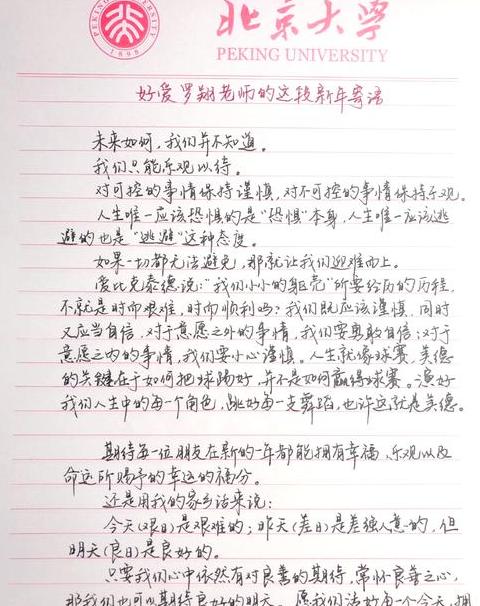 北京大学
PEKING UNIVERSITY
1898
好爱罗翔老师的这段新年寄语
未来如何,我们并不知道。
我们只能乐观以待。
对可控的事情保持谨慎,对不可控的事情保持乐观。
人生唯一应该恐惧的是“恐惧”本身,人生唯一应该逃
避的也是“逃避”这种态度。
如果一切都无法避免,那就让我们迎难而上。
爱比克泰德说:“我们小小的躯壳”所要经历的历程,
不就是时而艰难,时而顺利吗?我们既应该谨慎,同时
又应当自信,对于意愿之外的事情,我们要勇敢自信;对于
意愿之内的事情,我们要小心谨慎。人生就像球赛,美德
的关键在于如何把球踢好,并不是如何赢得球赛。演好
我们人生中的每一个角色,跳好每一支舞蹈,也许这就是美德。
期待每一位朋友在新的一年都能拥有幸福、乐观以及
命运所赐予的幸运的福分。
还是用我的家乡话来说:
今天(艰日)是艰难的;昨天(差日)是差强人意的,但
明天(良日)是良好的。
只要我们心中依然有对良善的期待,常怀良善之心,
那我们也可以期待良好的明天。愿我们活好每一个今天,拥